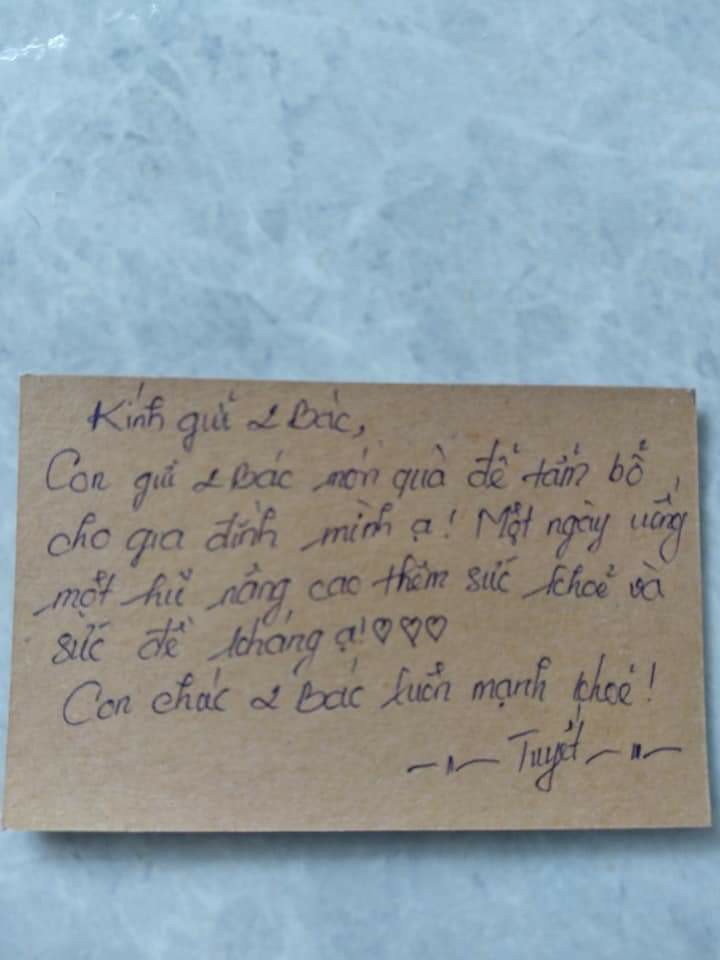 Kính gửi 2 Bác,
Con gửi 2 Bác món quà để tẩm bổ
cho gia đình mình ạ! Một ngày uống
một hũ nâng cao thêm sức khoẻ và
sức đề kháng ạ!♡♡♡
Con chúc 2 Bác luôn mạnh khoẻ!
Tuyết